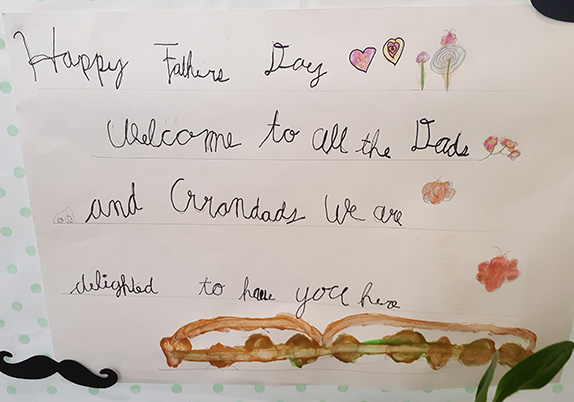 Happy Fathers Day
Welcome to all the Dads
and Grandads We are
delighted to have you here